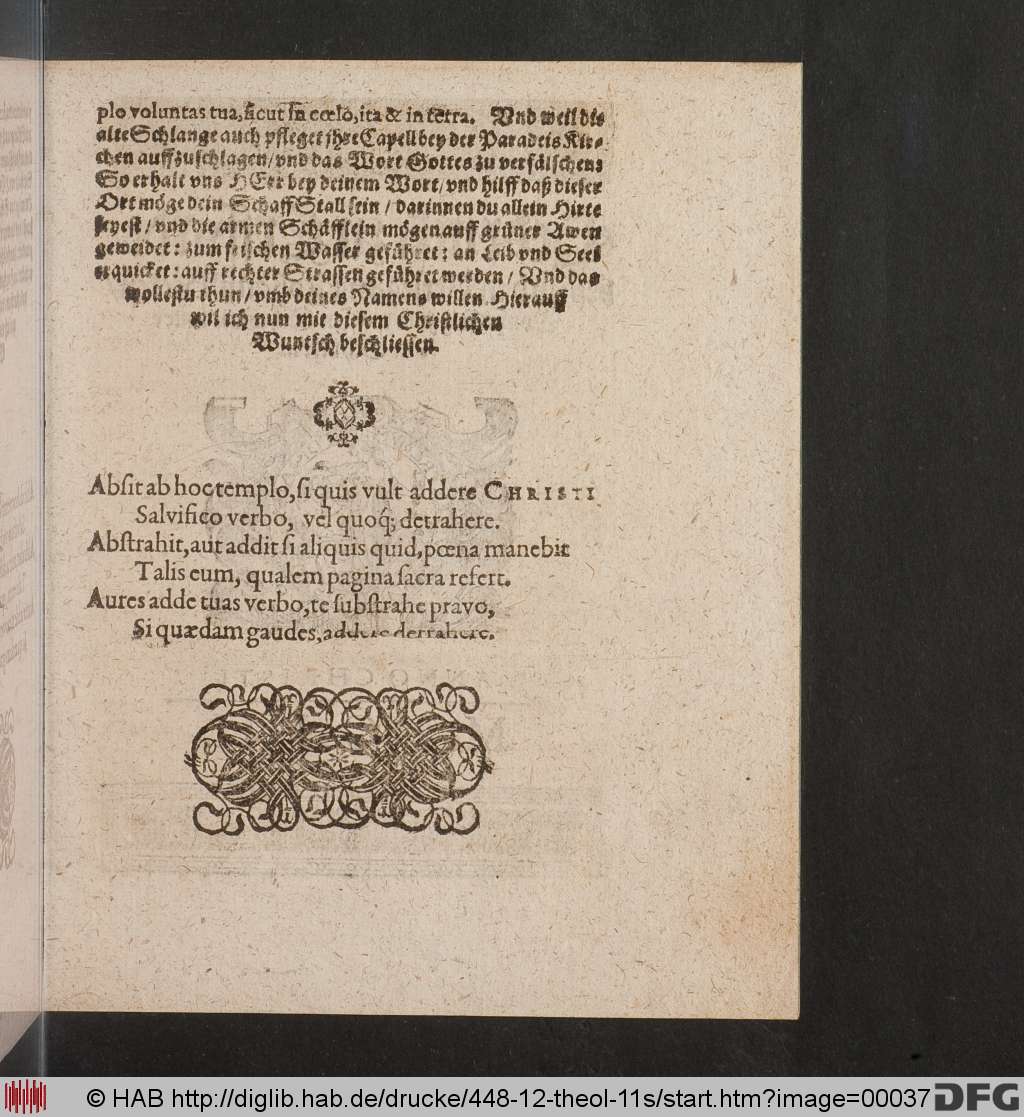 plo voluntas tua, sicut in cœlo, ita & in terra. Vnd weil die
alte Schlange auch pfleget jhre Capell bey der Paradeis Kir-
chen auffzuschlagen/ vnd das Wort Gottes zu verfälschen:
So erhalt vns HErr bey deinem Wort/ vnd hilff daß dieser
Ort möge dein Schaff Stall sein / darinnen du allein Hirte
seyest / vnd die armen Schäfflein mögen auff grüner Awen
geweidet: zum frischen Wasser geführet: an Leib vnd Seel
erquicket: auff rechter Strassen geführet werden / Vnd das
wollestu thun / vmb deines Namens willen. Hierauff
wil ich nun mit diesem Christlichen
Wuntsch beschliessen.
Absit ab hoc templo, si quis vult addere CHRISTI
Salvifico verbo, vel quoq́; detrahere.
Abstrahit, aut addit si aliquis quid, pœna manebit
Talis eum, qualem pagina sacra refert.
Aures adde tuas verbo, te substrahe pravo,
Si quædam gaudes, addere detrahere.
© HAB http://diglib.hab.de/drucke/448-12-theol-11s/start.htm?image=00037
DFG